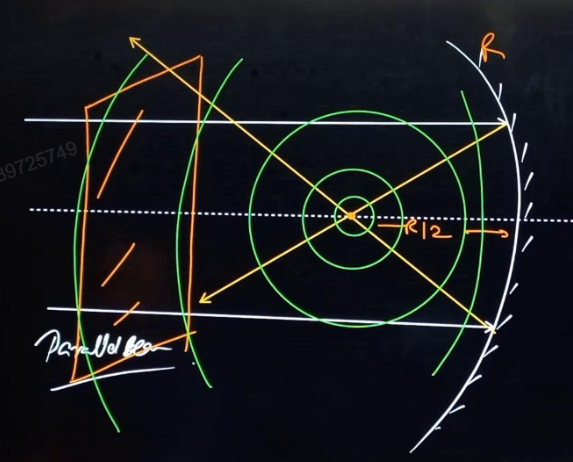 R
39725749
R/2
Parallel Beam